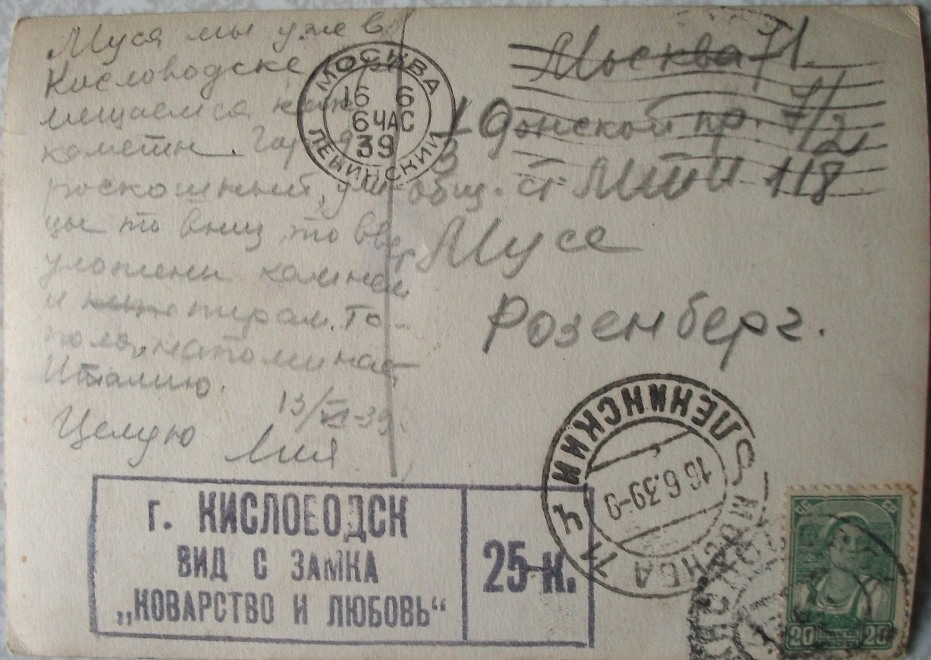 Муся мы уже в
Кисловодске
мещаемся
роскошный, ули
цы то вниз, то ввер
уложены камнем
и пирам. то-
поля, напоминает
Италию.
13/VI-39.
Целую Лия
МОСКВА
16 6
6 ЧАС
39
ЛЕНИНСКИЙ
Москва 71.
1 Донской пр. 7/2
общ. МТИ 118
Мусе
Розенберг.
ЛЕНИНСКИЙ
16.6.39-9
МОСКВА 71
г. КИСЛОВОДСК
ВИД С ЗАМКА
„КОВАРСТВО И ЛЮБОВЬ“
25 к.
20 ПОЧТА 20